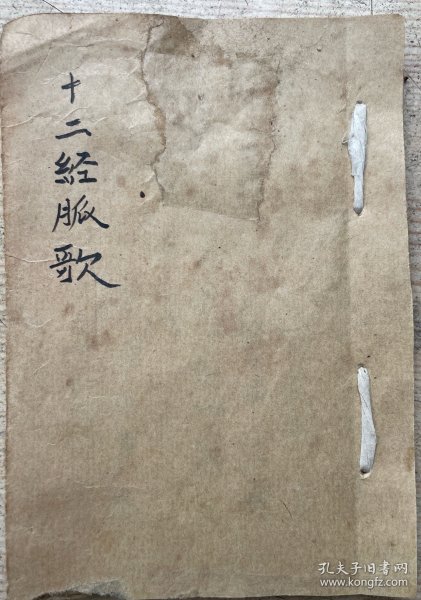 十二経脈歌
孔夫子旧书网
www.kongfz.com